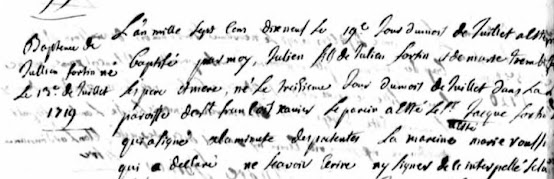 L'an mille sept Cens dixneuf le 19e Jour dumois de Juillet a este
Baptesme de
Baptisé par moy, Julien fils de Julien fortin et de marie
Jullien fortin né
Le 13e de Juillet
ses pere et mere, né le treisieme Jour dumois de Juillet dans la
1719
paroisse de st francois xavier Le parein a esté le Sr Jacque
qui a signé a la minute des presentes La mareine marie
qui a declaré ne scavoir Ecrire ny signer de ce interpellé